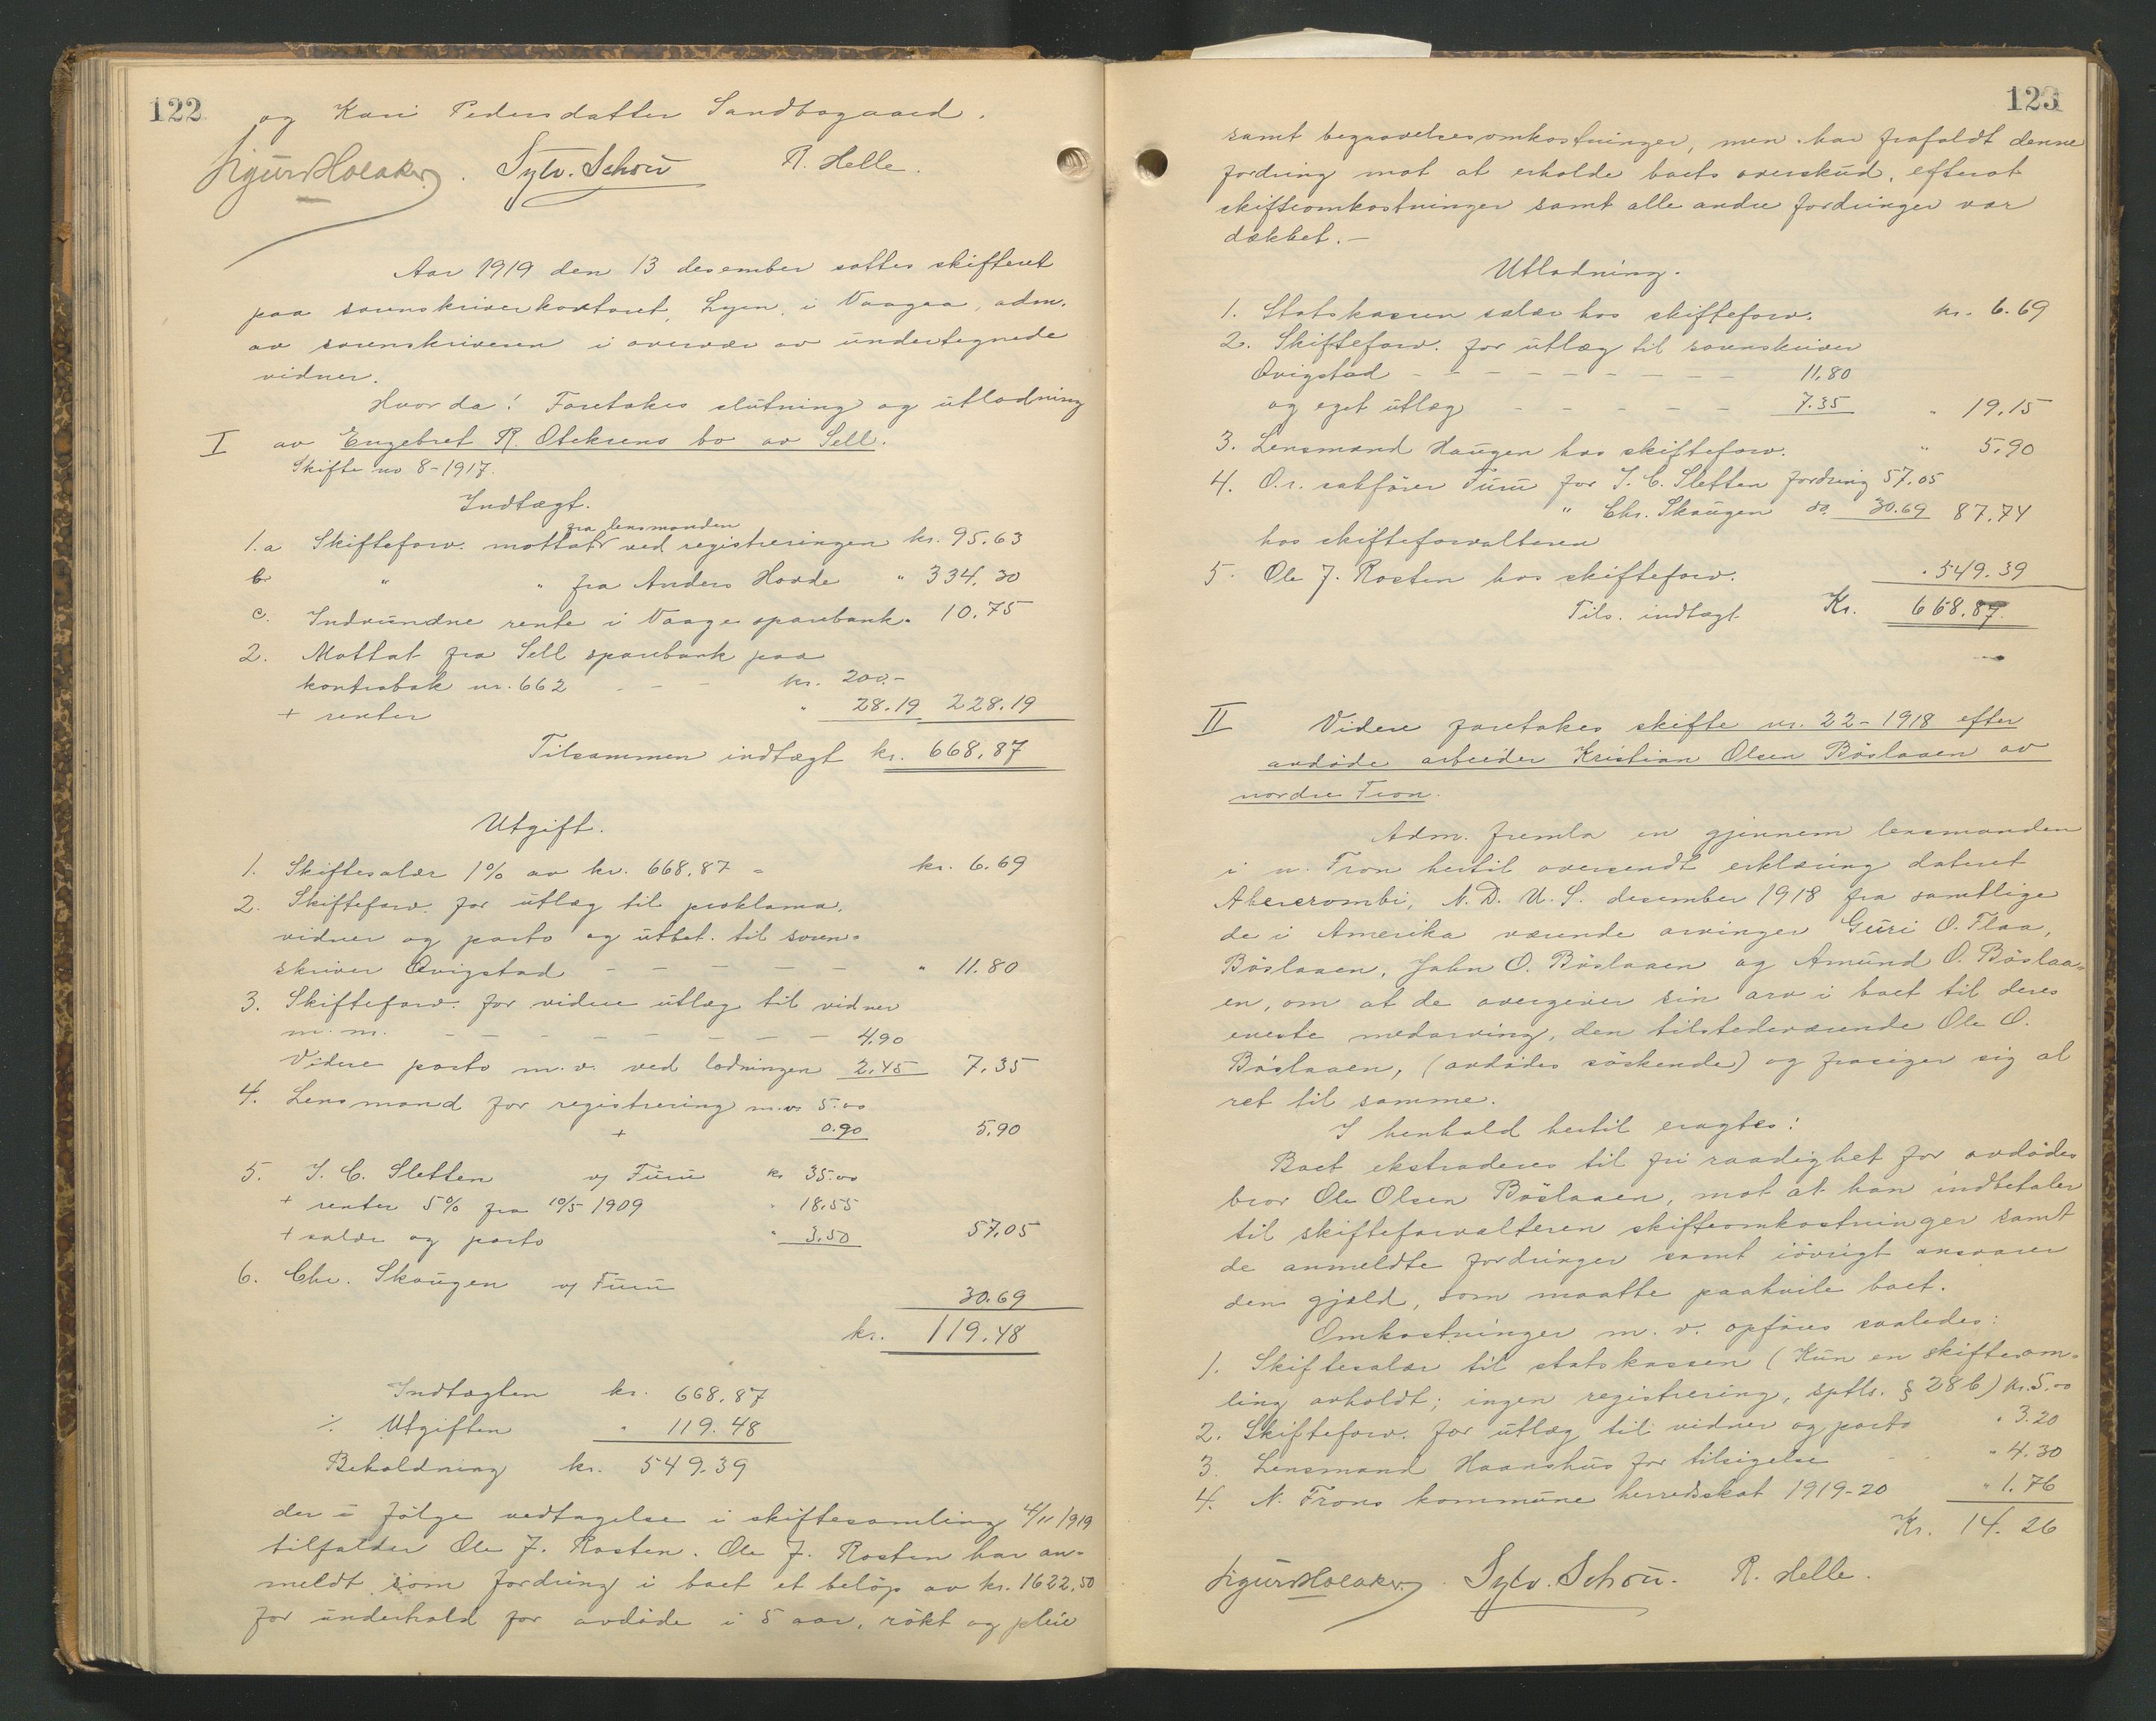 122
og Kari Pedersdatter Sandbogaard.
Sigurd Holaker. Sylv. Schou R. Helle.
Aar 1919 den 13 desember sattes skifteret
paa sorenskriverkontoret, Lyen, i Vaagaa, adm.
av sorenskriveren i overvær av undertegnede
vidner.
Hvor da! Foretakes slutning og utlodning
I av Engebret R. Oteksens bo av Sell.
Skifte no 8-1917.
Indtægt.
fra lensmanden
1.a Skifteforv. mottat ved registreringen kr. 95.63
b " " fra Anders Hovde " 334.30
c. Indvundne rente i Vaage sparebank " 10.75
2. Mottat fra Sell sparebank paa
kontrabok nr. 662 - - - kr. 200.-
+ renter " 28.19 228.19
Tilsammen indtægt kr. 668.87
Utgift.
1. Skiftesalær 1% av kr. 668.87 = kr. 6.69
2. Skifteforv. for utlæg til proklama,
vidner og porto og utbet. til soren-
skriver Qvigstad - - - - - " 11.80
3. Skifteforv. for videre utlæg til vidner
m.m. - - - - - - - - 4.90
Videre porto m.v. ved lodningen 2.45 7.35
4. Lensmand for registrering m.v. 5.00
+ 0.90 5.90
5. J. C. Sletten v/ Furu kr 35.00
+ renter 5% fra 10/5 1909 " 18.55
+ salær og porto " 3.50 57.05
6. Chr. Skaugen v/ Furu 30.69
kr. 119.48
Indtægten kr. 668.87
÷ Utgiften " 119.48
Beholdning kr. 549.39
der i følge vedtagelse i skiftesamling 4/11 1919
tilfalder Ole J. Rosten. Ole J. Rosten har an-
meldt som fordring i boet et beløp av kr. 1622.50
for underhold for avdøde i 5 aar, røkt og pleie
123
samt begravelsesomkostninger, men har frafaldt denne
fordring mot at erholde boets overskud, efterat
skifteomkostninger samt alle andre fordringer var
dækket.-
Utlodning.
1. Statskassen salær hos skifteforv. kr. 6.69
2. Skifteforv. for utlæg til sorenskriver
Qvigstad - - - - - - - - - 11.80
og eget utlæg - - - - - 7.35 " 19.15
3. Lensmand Haugen hos skifteforv. " 5.90
4. O.r. sakfører Furu for J. C. Sletten fordring 57.05
" Chr. Skaugen do. 30.69 87.74
hos skifteforvalteren
5. Ole J. Rosten hos skifteforv. " 549.39
Tils. indtægt Kr. 668.87
II Videre foretakes skifte nr. 22-1918 efter
avdøde arbeider Kristian Olsen Böslaaen av
nordre Fron.
Adm. fremla en gjennem lensmanden
i n. Fron hertil oversendt erklæring dateret
Abercrombi, N.D. U.S. desember 1918 fra samtlige
de i Amerika værende arvinger Guri O. Flaa,
Böslaaen, John O. Böslaaen og Amund O. Böslaa-
en, om at de overgiver sin arv i boet til deres
eneste medarving, den tilstedeværende Ole O.
Böslaaen, (avdødes søskende) og frasiger sig al
ret til samme.
I henhold hertil eragtes:
Boet ekstraderes til fri raadighet for avdødes
bror Ole Olsen Böslaaen, mot at han indbetaler
til skifteforvalteren skifteomkostninger samt
de anmeldte fordringer samt iøvrigt ansvarer
den gjæld, som maatte paahvile boet.
Omkostninger m.v. opføres saaledes:
1. Skiftesalær til statskassen (Kun en skiftesam-
ling avholdt; ingen registrering, sptls. § 28 b) kr. 5.00
2. Skifteforv. for utlæg til vidner og porto " 3.20
3. Lensmand Haanshus for tilsigelse " 4.30
4. N. Frons kommune herredsskat 1919-20 " 1.76
Kr. 14.26
Sigurd Holaker. Sylv. Schou. R. Helle.